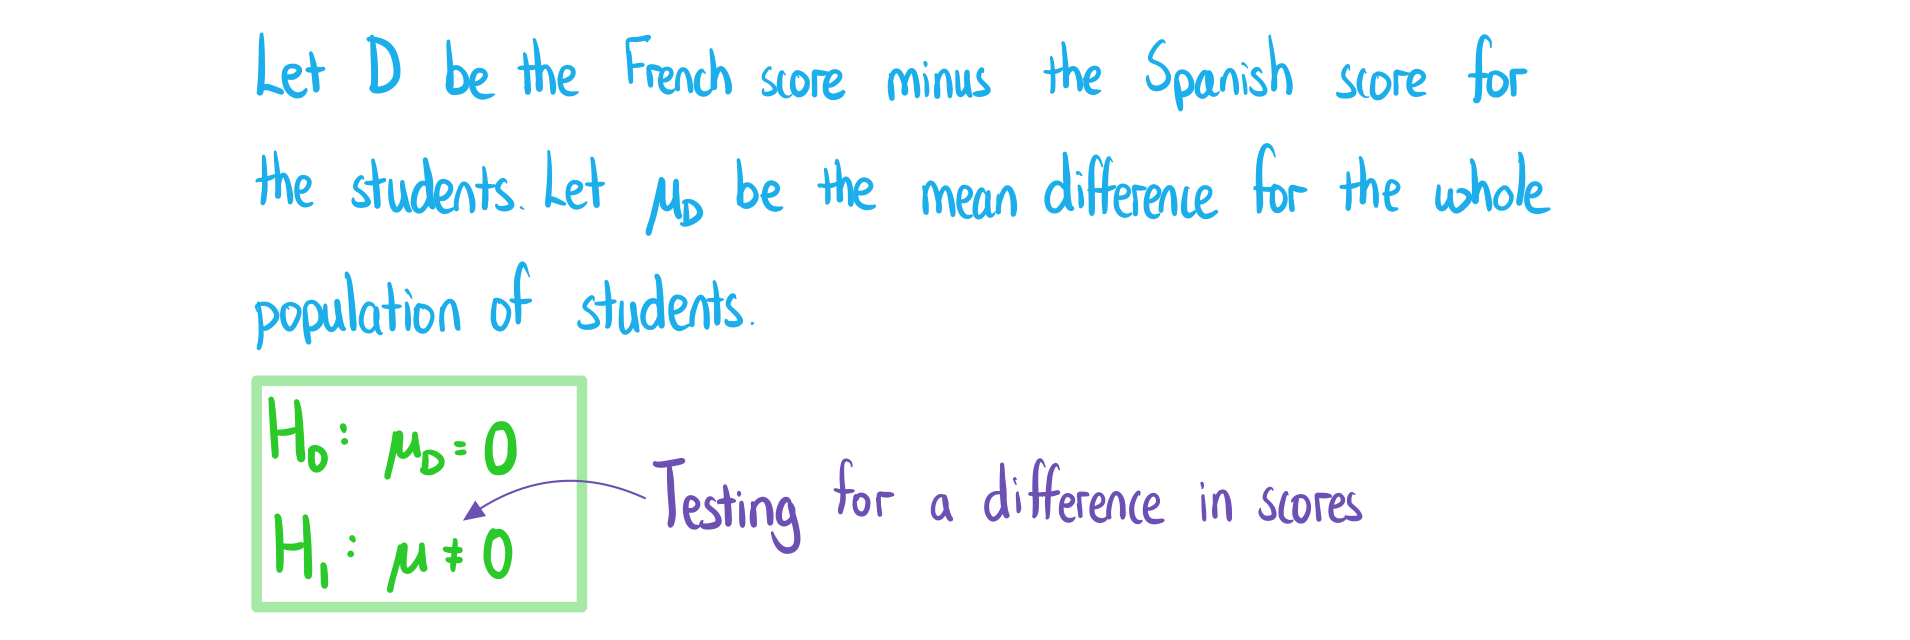 Let D be the French score minus the Spanish score for
the students. Let μ_D be the mean difference for the whole
population of students.
H₀: μ_D = 0
Testing for a difference in scores
H₁: μ ≠ 0